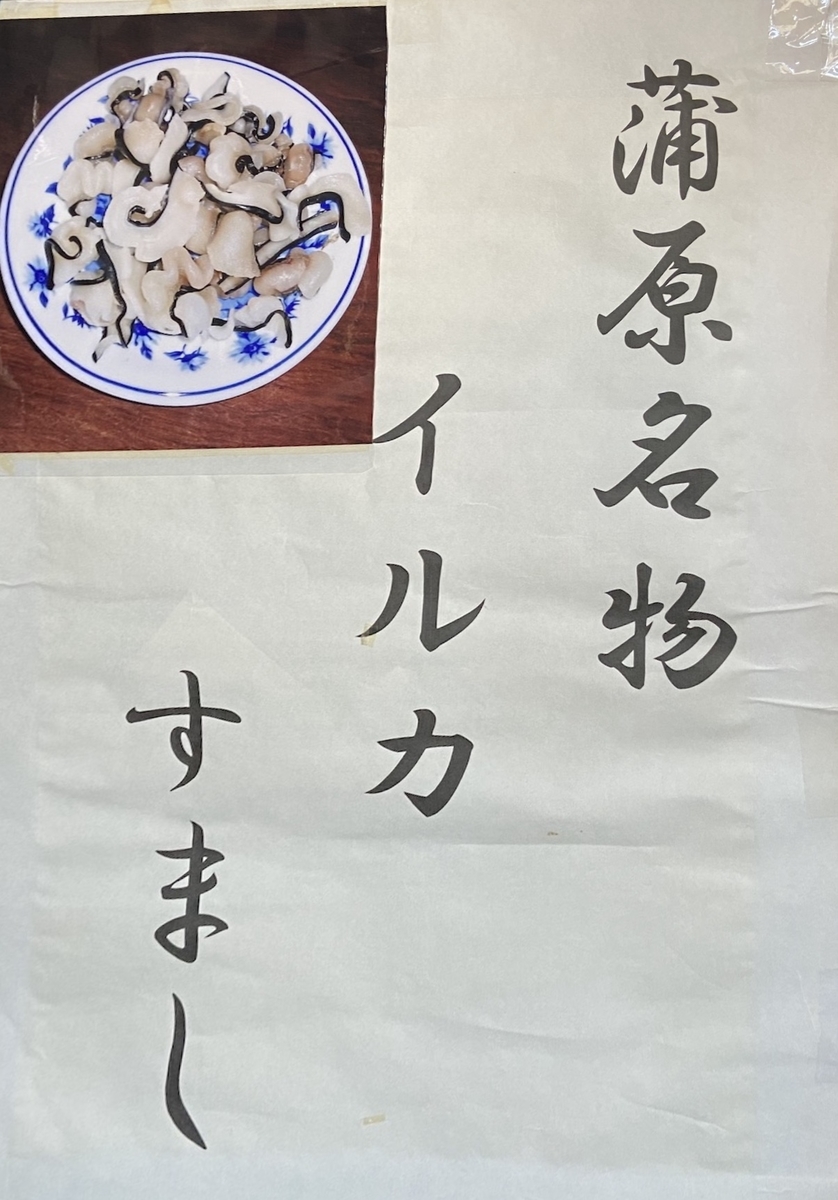 蒲原名物
イルカ
すまし